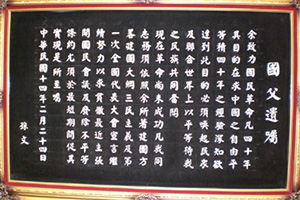 國父遺囑
余致力國民革命凡四十年
其目的在求中國之自由平
等積四十年之經驗深知欲
達到此目的必須喚起民眾
及聯合世界上以平等待我
之民族共同奮鬥
現在革命尚未成功凡我同
志務須依照余所著建國方
略建國大綱三民主義及第
一次全國代表大會宣言繼
續努力以求貫徹最近主張
開國民會議及廢除不平等
條約尤須於最短期間促其
實現是所至囑
中華民國十四年二月二十四日
孫文